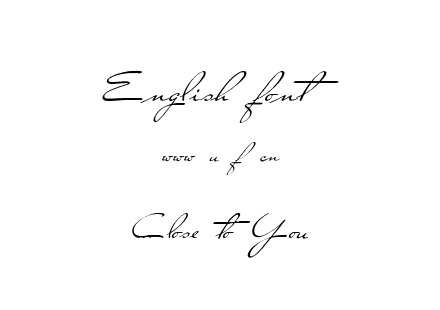 English font
www u f cn
Close to You